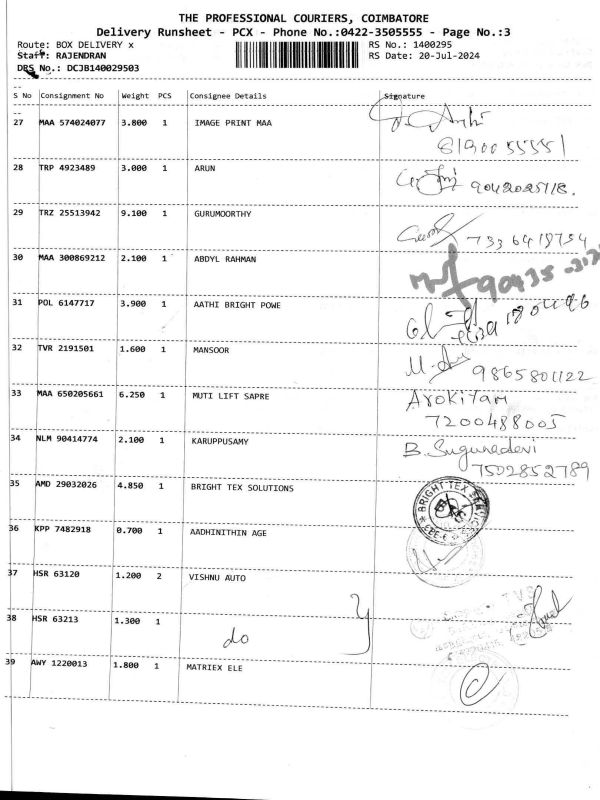 THE PROFESSIONAL COURIERS, COIMBATORE
Delivery Runsheet - PCX - Phone No.:0422-3505555 - Page No.:3
Route: BOX DELIVERY x
RS No.: 1400295
Staff: RAJENDRAN
RS Date: 20-Jul-2024
DRS No.: DCJB140029503
S No Consignment No Weight PCS Consignee Details Signature
27 MAA 574024077 3.800 1 IMAGE PRINT MAA
8190055551
28 TRP 4923489 3.000 1 ARUN
29 TRZ 25513942 9.100 1 GURUMOORTHY
7336418754
30 MAA 300869212 2.100 1 ABDYL RAHMAN
31 POL 6147717 3.900 1 AATHI BRIGHT POWE
32 TVR 2191501 1.600 1 MANSOOR
9865801122
33 MAA 650205661 6.250 1 MUTI LIFT SAPRE
Arokiyam
7200488005
34 NLM 90414774 2.100 1 KARUPPUSAMY
B. Sugunadevi
7502852789
35 AMD 29032026 4.850 1 BRIGHT TEX SOLUTIONS
BRIGHT TEX
36 KPP 7482918 0.700 1 AADHINITHIN AGE
37 HSR 63120 1.200 2 VISHNU AUTO
38 HSR 63213 1.300 1
do
39 AWY 1220013 1.800 1 MATRIEX ELE